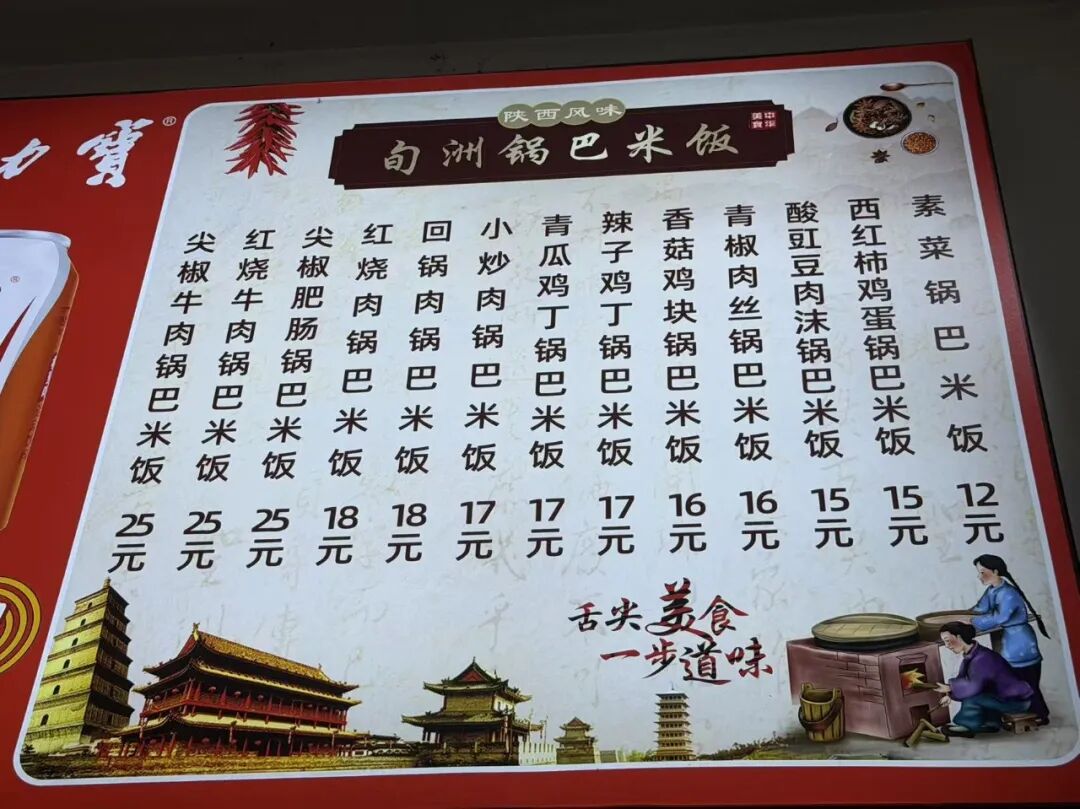 力寶®
陕西风味
旬洲锅巴米饭
中华
美食
尖椒牛肉锅巴米饭
25元
红烧牛肉锅巴米饭
25元
尖椒肥肠锅巴米饭
25元
红烧肉锅巴米饭
18元
回锅肉锅巴米饭
18元
小炒肉锅巴米饭
17元
青瓜鸡丁锅巴米饭
17元
辣子鸡丁锅巴米饭
17元
香菇鸡块锅巴米饭
16元
青椒肉丝锅巴米饭
16元
酸豇豆肉沫锅巴米饭
15元
西红柿鸡蛋锅巴米饭
15元
素菜锅巴米饭
12元
舌尖美食
一步道味